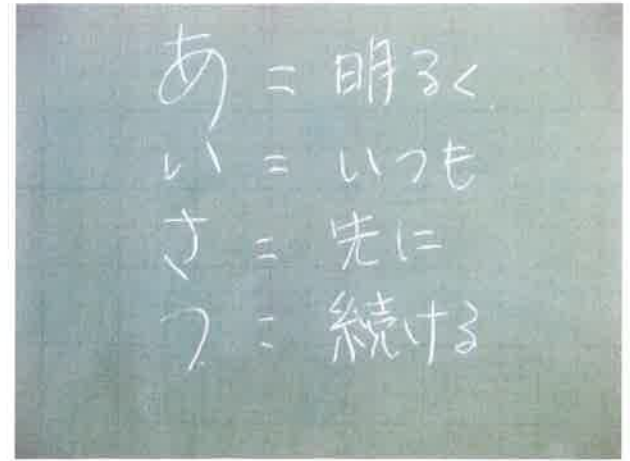 あ = 明るく
い = いつも
さ = 先に
つ = 続ける